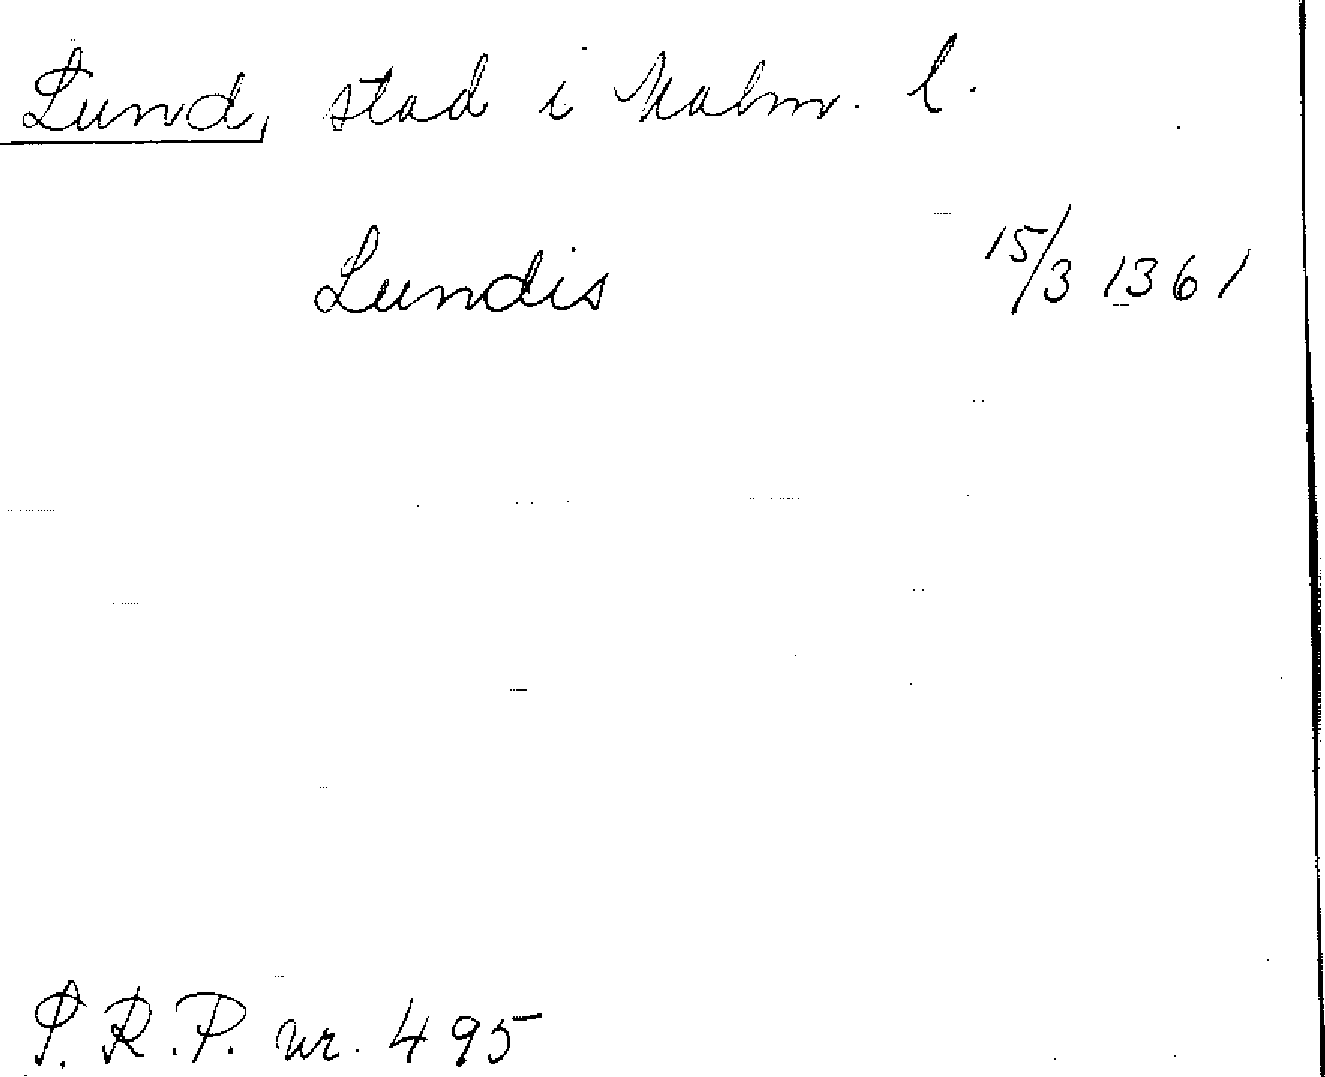 Lund, stad i Malm. l.
Lundis 15/3 1361
S.R.P. nr. 495